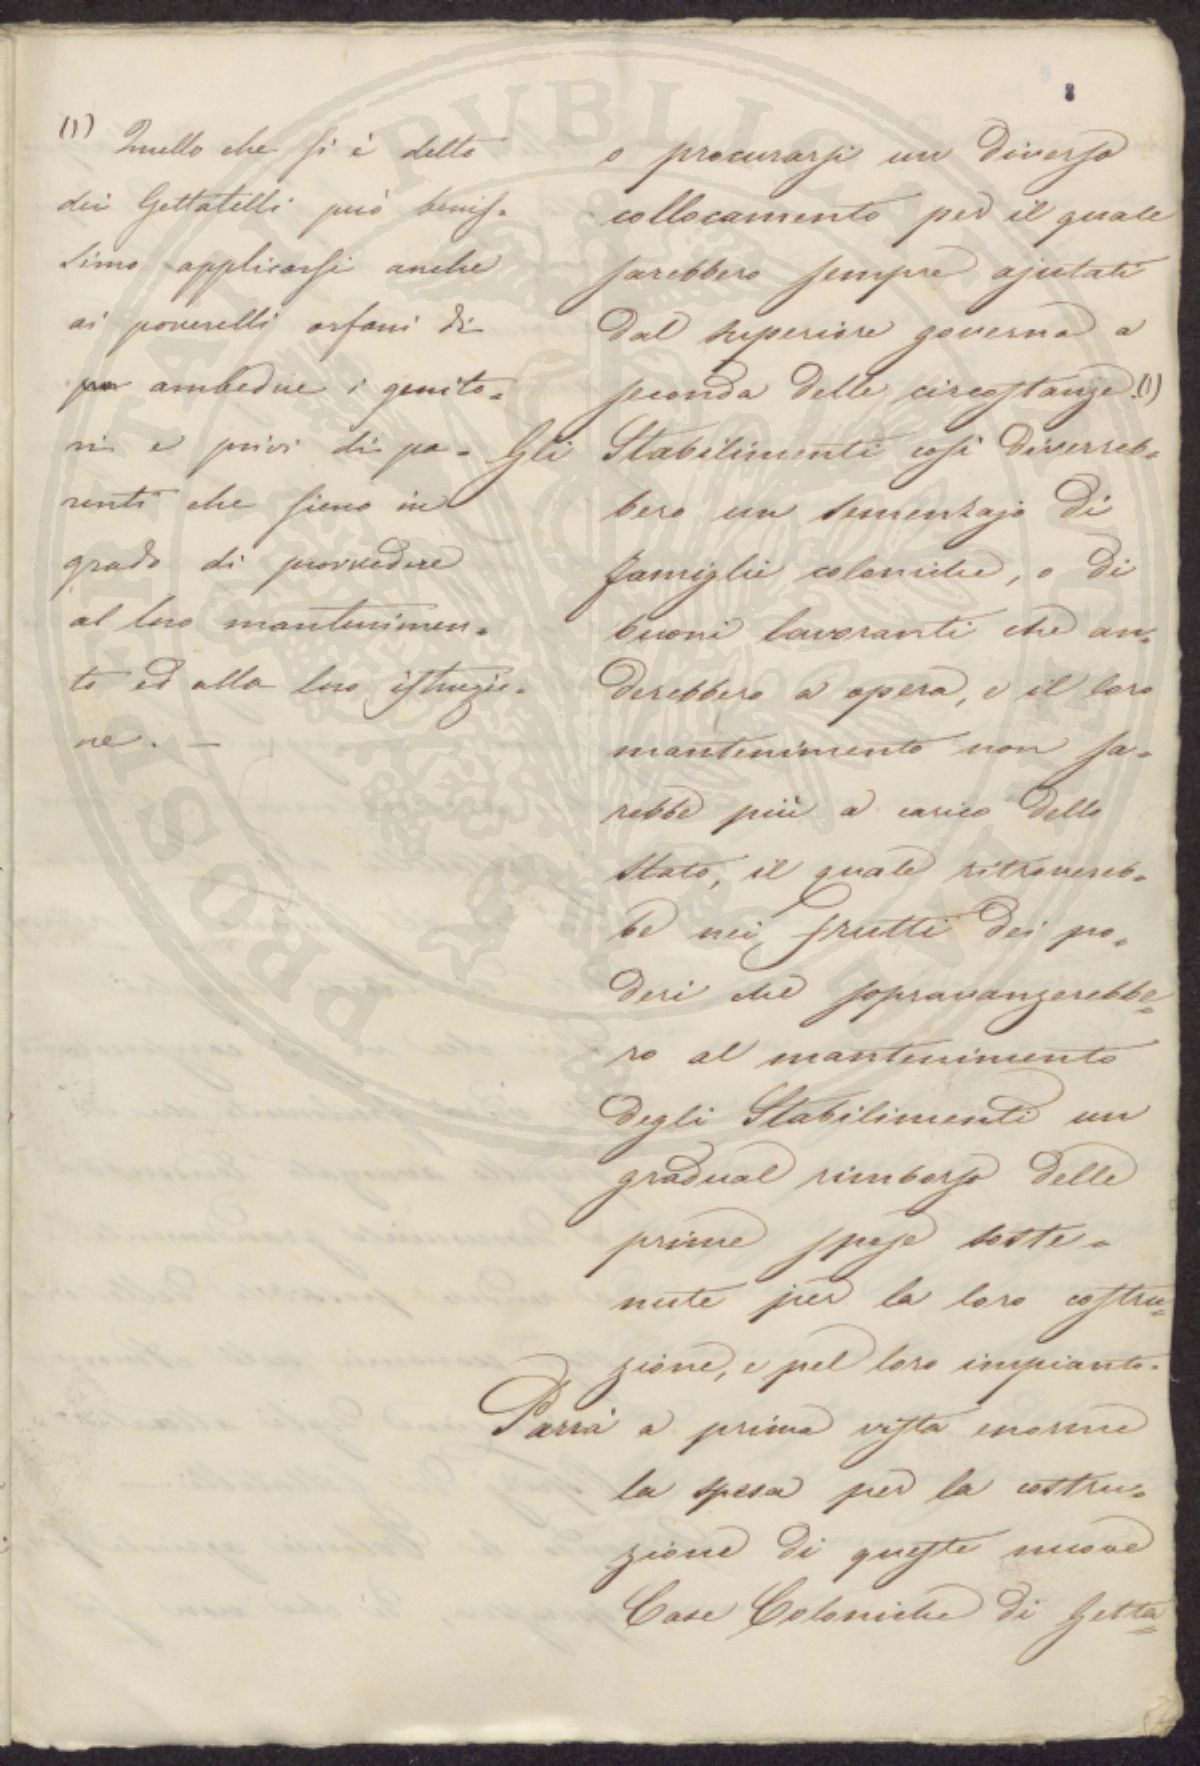 8
(1) Quello che si è detto
dei Gettatelli può benis-
simo applicarsi anche
ai poverelli orfani di
ambedue i genito-
ri e privi di pa-
renti che sieno in
grado di provvedere
al loro mantenimen-
to ed alla loro istruzio-
ne. —
o procurarsi un diverso
collocamento per il quale
sarebbero sempre ajutati
dal superiore governo a
seconda delle circostanze.(1)
Gli Stabilimenti così diverreb-
bero un semenzajo di
famiglie coloniche, o di
buoni lavoranti che an-
derebbero a opera, e il loro
mantenimento non sa-
rebbe più a carico dello
Stato, il quale ritrovereb-
be nei frutti dei po-
deri che sopravanzerebbe-
ro al mantenimento
degli Stabilimenti un
gradual rimborso delle
prime spese soste-
nute per la loro costru-
zione, e pel loro impianto.
Parrà a prima vista enorme
la spesa per la costru-
zione di queste nuove
Case Coloniche di Getta-
PUBLICAE
PROSPERITATI